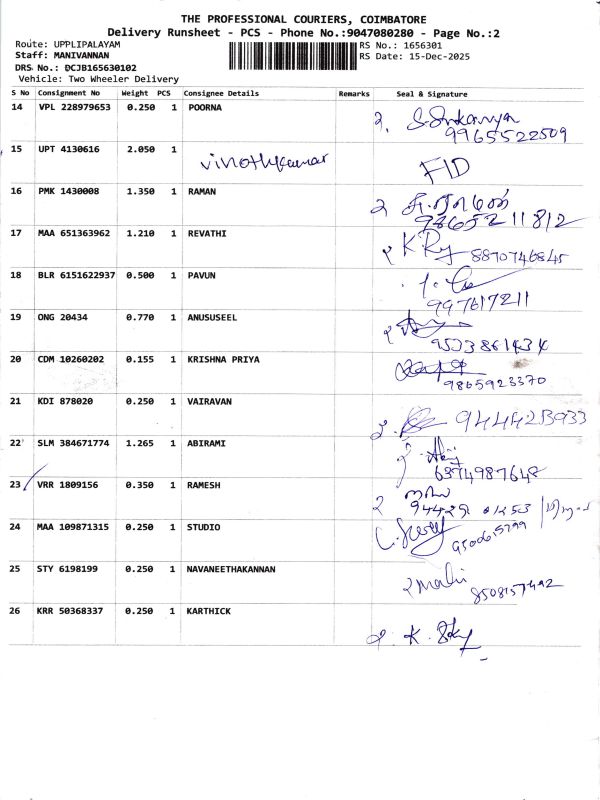 THE PROFESSIONAL COURIERS, COIMBATORE
Delivery Runsheet - PCS - Phone No.:9047080280 - Page No.:2
Route: UPPLIPALAYAM
RS No.: 1656301
Staff: MANIVANNAN
RS Date: 15-Dec-2025
DRS No.: DCJB165630102
Vehicle: Two Wheeler Delivery
S No Consignment No Weight PCS Consignee Details Remarks Seal & Signature
14 VPL 228979653 0.250 1 POORNA
2. S. Srikanya
9965522509
15 UPT 4130616 2.050 1
vinothkumar FID
16 PMK 1430008 1.350 1 RAMAN
2
9865211812
17 MAA 651363962 1.210 1 REVATHI
2 K Ry 8870746845
18 BLR 6151622937 0.500 1 PAVUN
997617211
19 ONG 20434 0.770 1 ANUSUSEEL
2
9533861434
20 CDM 10260202 0.155 1 KRISHNA PRIYA
9865923370
21 KDI 878020 0.250 1 VAIRAVAN
2.
22 SLM 384671774 1.265 1 ABIRAMI
6374987648
23 VRR 1809156 0.350 1 RAMESH
2
24 MAA 109871315 0.250 1 STUDIO
25 STY 6198199 0.250 1 NAVANEETHAKANNAN
2 Malu
26 KRR 50368337 0.250 1 KARTHICK
2. K.